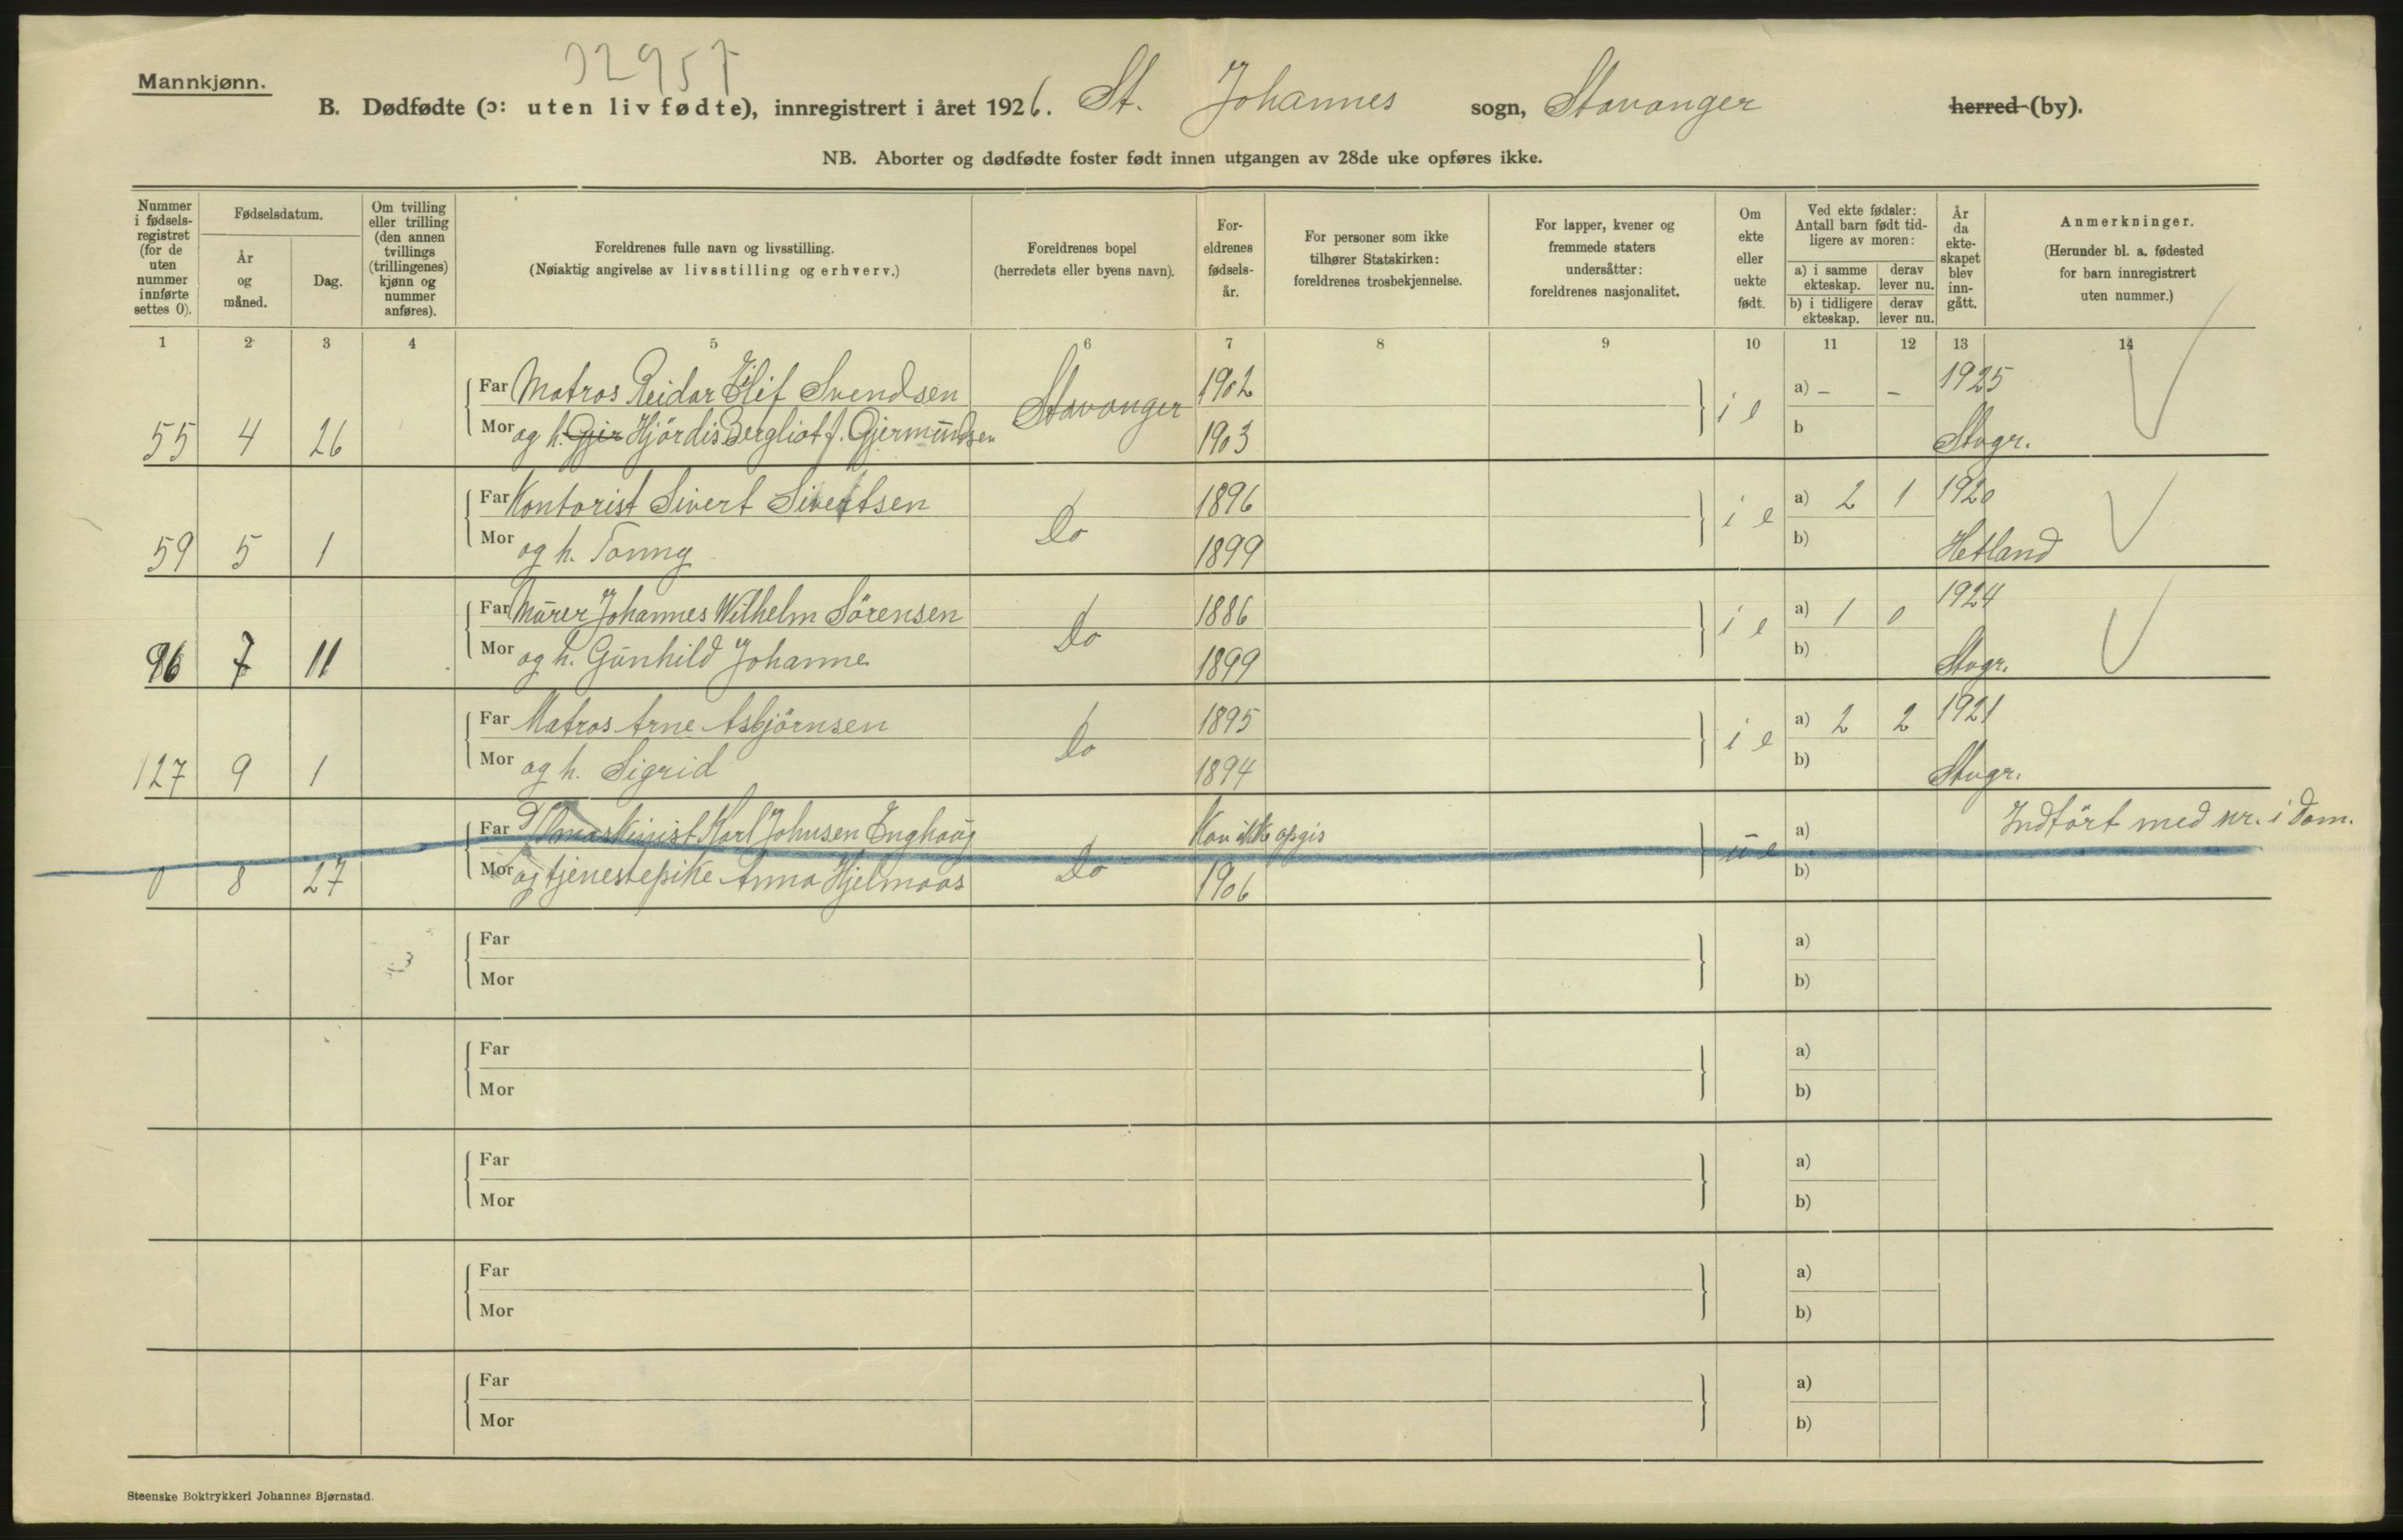 32957
Mannkjønn.
B. Dødfødte (ɔ: uten liv fødte), innregistrert i året 1926. St. Johannes sogn, Stavanger herred (by).
NB. Aborter og dødfødte foster født innen utgangen av 28de uke opføres ikke.
Nummer i fødselsregistret (for de uten nummer innførte settes 0).
Fødselsdatum.
År og måned.
Dag.
Om tvilling eller trilling (den annen tvillings (trillingenes) kjønn og nummer anføres).
Foreldrenes fulle navn og livsstilling.
(Nøiaktig angivelse av livsstilling og erhverv.)
Foreldrenes bopel
(herredets eller byens navn).
Foreldrenes fødselsår.
For personer som ikke tilhører Statskirken: foreldrenes trosbekjennelse.
For lapper, kvener og fremmede staters undersåtter: foreldrenes nasjonalitet.
Om ekte eller uekte født.
Ved ekte fødsler: Antall barn født tidligere av moren:
a) i samme ekteskap. derav lever nu.
b) i tidligere ekteskap. derav lever nu.
År da ekteskapet blev inngått.
Anmerkninger.
(Herunder bl. a. fødested for barn innregistrert uten nummer.)
1 2 3 4 5 6 7 8 9 10 11 12 13 14
Far Matros Reidar Svendsen 1902 a) - - 1925
55 4 26 Mor og h. Gjer Hjördis Bergliot f. Gjermundsen Stavanger 1903 i e b Stvgr.
Far Kontorist Sivert Sivertsen 1896 a) 2 1 1920
59 5 1 Mor og h. Tonny Do 1899 i e b) Hetland
Far Murer Johannes Wilhelm Sörensen 1886 a) 1 0 1924
96 7 11 Mor og h. Gunhild Johanne Do 1899 i e b) Stvgr.
Far Matros Arne Asbjörnsen 1895 a) 2 2 1921
127 9 1 Mor og h. Sigrid Do 1894 i e b) Stvgr.
Far Karl Johnsen Enghaug Kan ikke opgis a) Indført med nr. i Dom.
0 8 27 Mor og tjenestepike Anna Hjelmaas Do 1906 u e b)
Far a)
Mor b)
Far a)
Mor b)
Far a)
Mor b)
Far a)
Mor b)
Far a)
Mor b)
Steenske Boktrykkeri Johannes Bjørnstad.